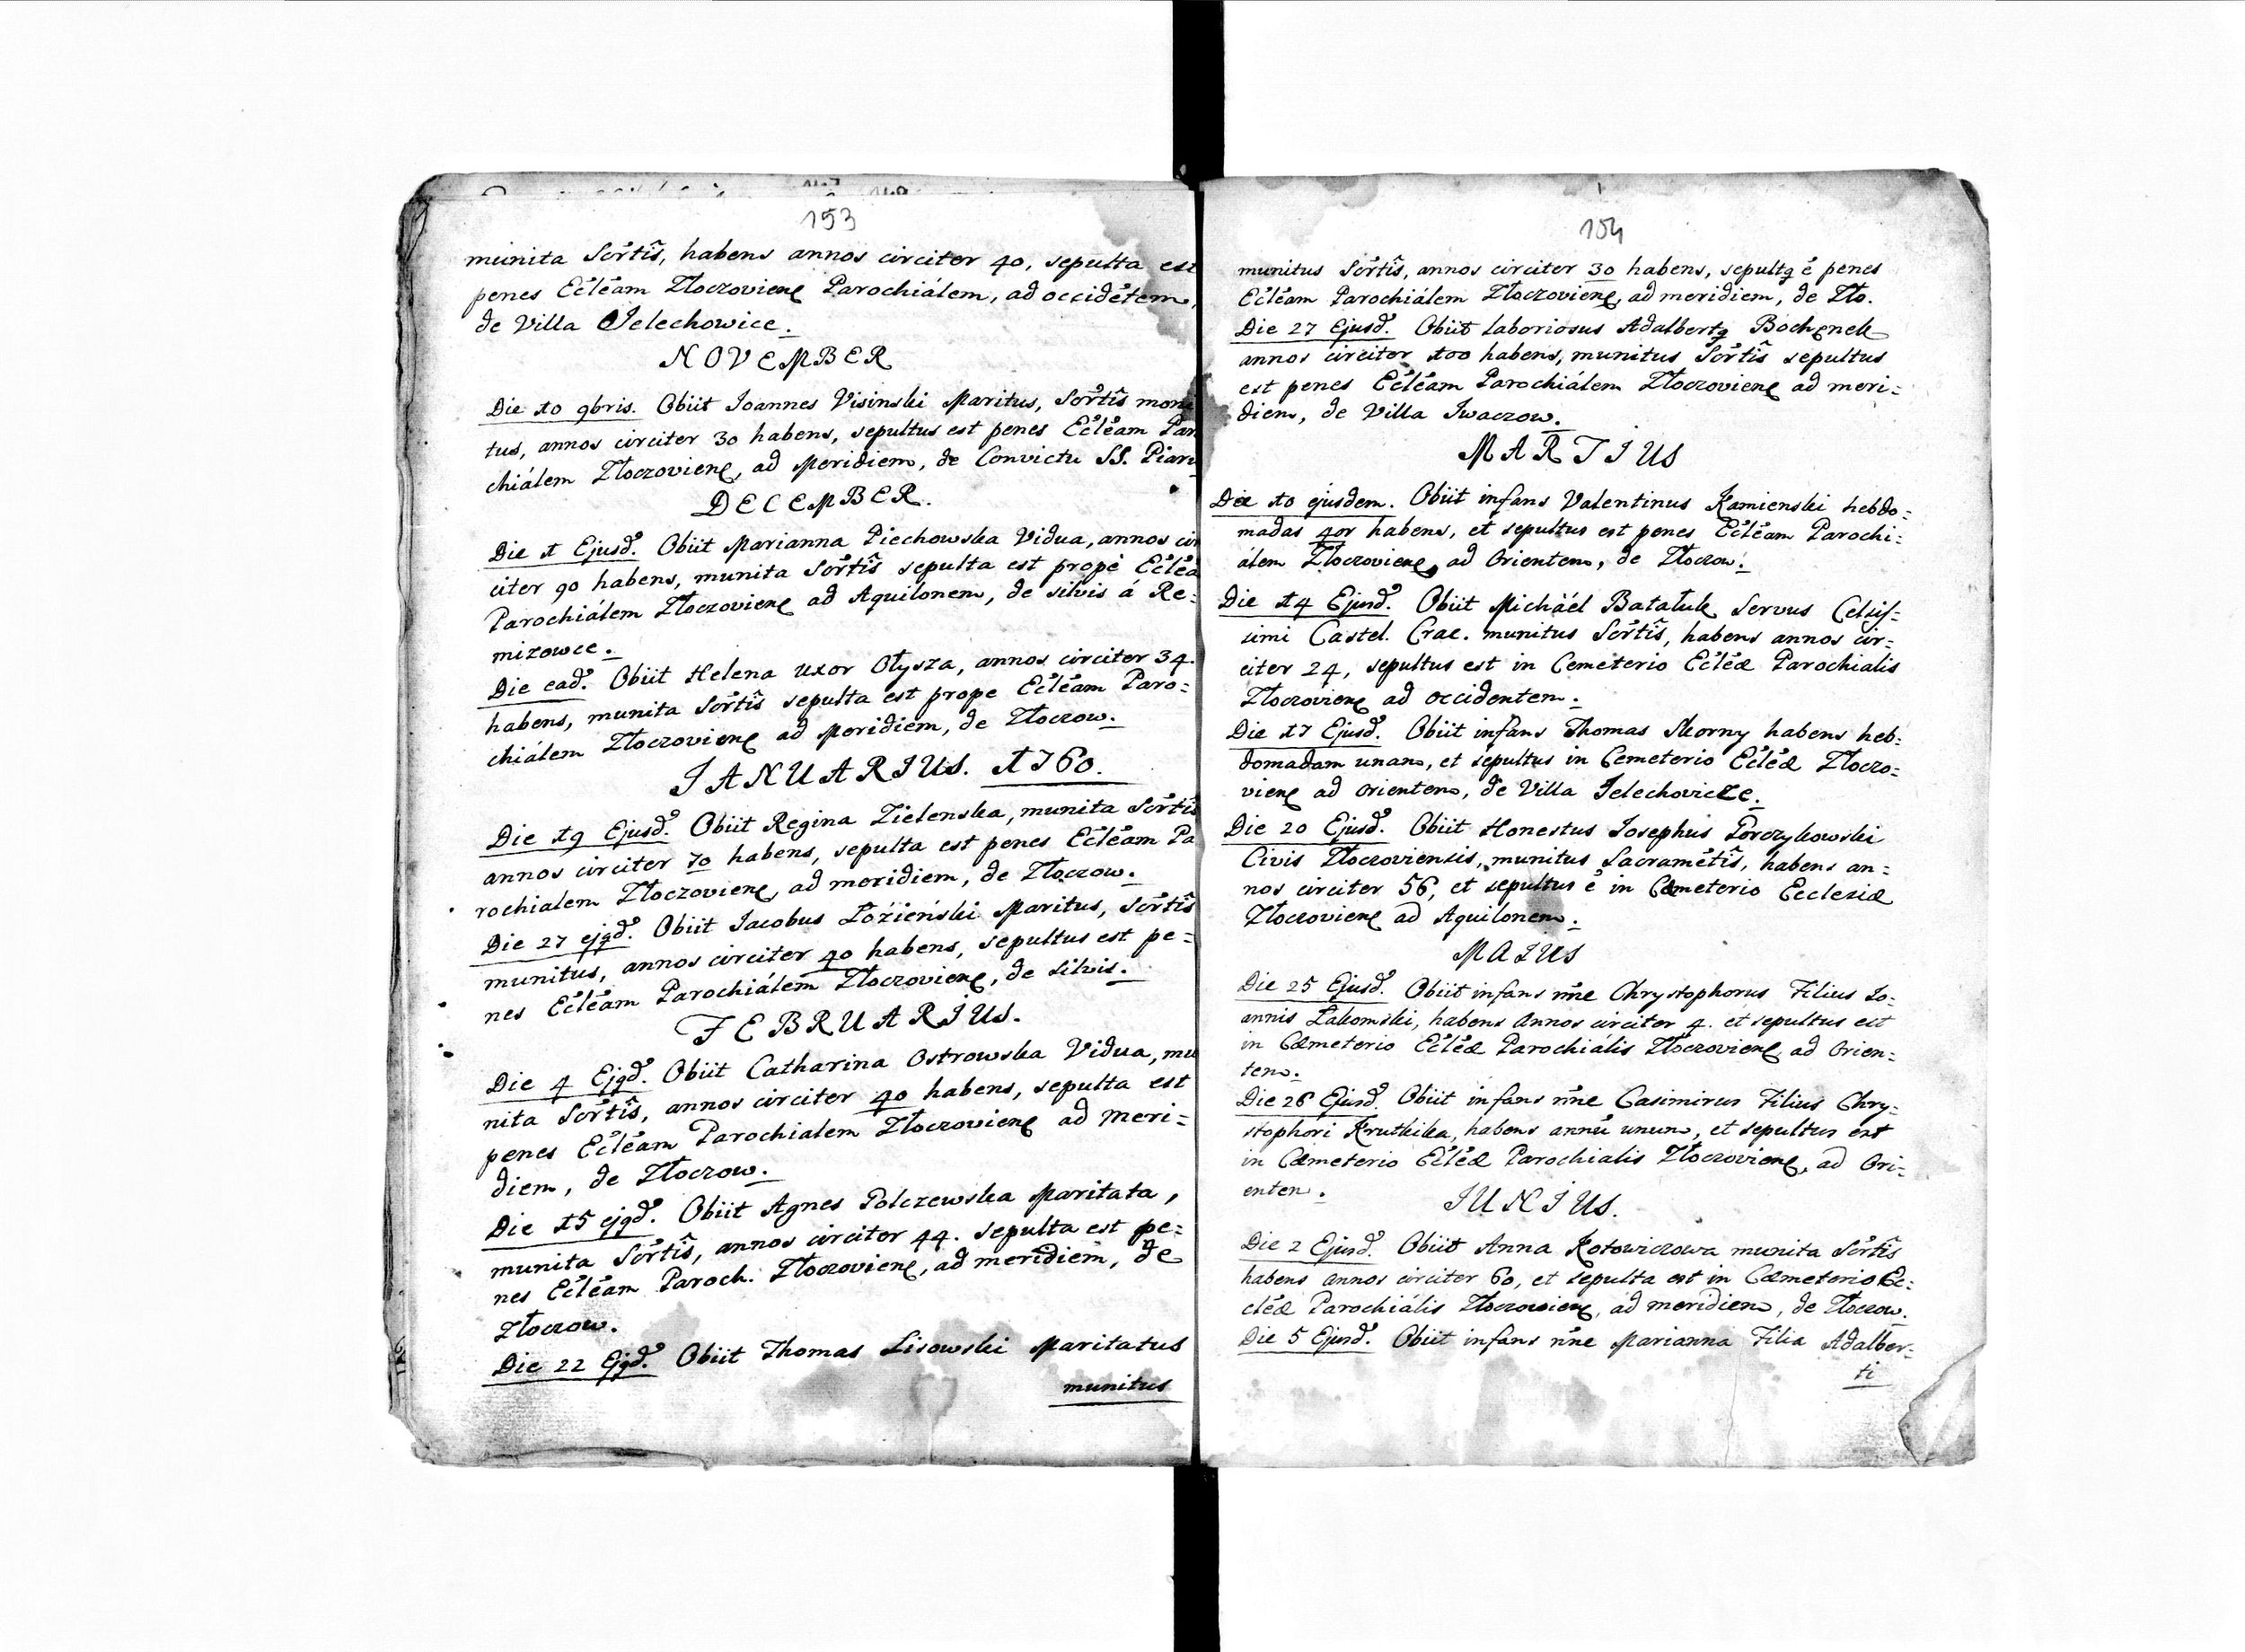 153
munita Sc̃rtis̃, habens annos circiter 40, sepulta est
penes Ecl̃eam Złoczovien̄ Parochiálem, ad occidẽtem,
de Villa Jelechowice.
NOVEMBER
Die 10 9bris. Obiit Joannes Visinski Maritus, Sc̃rtis̃ moni
tus, annos circiter 30 habens, sepultus est penes Ecl̃eam Par
chiálem Złoczovien̄, ad Meridiem, de Convictu SS. Piaru
DECEMBER.
Die 1 Ejusd̃. Obiit Marianna Piechowska Vidua, annos cir
citer 90 habens, munita Sc̃rtis̃ sepulta est propè Ecl̃ea
Parochiálem Złoczovien̄ ad Aquilonem, de silvis á Re=
mizowce.
Die ead̃. Obiit Helena uxor Ołysza, annos circiter 34.
habens, munita Sc̃rtis̃ sepulta est prope Ecl̃eam Paro=
chiálem Złoczovien̄ ad Meridiem, de Złoczow.
JANUARIUS. 1760.
Die 19 Ejusd̃. Obiit Regina Zielenska, munita Sc̃rtis̃
annos circiter 70 habens, sepulta est penes Ecl̃eam Pa
rochialem Złoczovien̄, ad meridiem, de Złoczow.
Die 27 ejqd̃. Obiit Jacobus Łoźieński Maritus, Sc̃rtis̃
munitus, annos circiter 40 habens, sepultus est pe=
nes Ecl̃eam Parochiálem Złoczovien̄, de silvis.
FEBRUARIUS.
Die 4 Ejqd̃. Obiit Catharina Ostrowska Vidua, mu
nita Sc̃rtis̃, annos circiter 40 habens, sepulta est
penes Ecl̃eam Parochialem Złoczovien̄ ad Meri=
diem, de Złoczow.
Die 15 ejqd̃. Obiit Agnes Polczewska Maritata,
munita Sc̃rtis̃, annos circiter 44. sepulta est pe=
nes Ecl̃eam Paroch. Złoczovien̄, ad meridiem, de
Złoczow.
Die 22 Ejqd̃. Obiit Thomas Lisowski Maritatus
munitus
154
munitus Sc̃rtis̃, annos circiter 30 habens, sepultq ẽ penes
Ecl̃eam Parochiálem Złoczovien̄, ad meridiem, de Zło.
Die 27 Ejusd̃. Obiit laboriosus Adalbertq Bochenek
annos circiter 100 habens, munitus Sc̃rtis̃ sepultus
est penes Ecl̃eam Parochiálem Złoczovien̄ ad meri=
diem, de Villa Jwaczow.
MARTIUS
Die 10 ejusdem. Obiit infans Valentinus Kamienski hebdo=
madas 4or habens, et sepultus est penes Ecl̃eam Parochi=
álem Złoczovien̄, ad Orientem, de Złoczow.
Die 14 Ejusd̃. Obiit Michäél Batałuk Servus Celsis=
simi Castel. Crac. munitus Sc̃rtis̃, habens annos cir=
citer 24, sepultus est in Cemeterio Ecl̃eæ Parochialis
Złoczovien̄ ad occidentem.
Die 17 Ejusd̃. Obiit infans Thomas Skorny habens heb=
domadam unam, et sepultus in Cemeterio Ecl̃eæ Złoczo=
vien̄ ad orientem, de Villa Jelechovicze.
Die 20 Ejusd̃. Obiit Honestus Josephus Porczykowski
Civis Złoczoviensis, munitus Sacramẽtis̃, habens an=
nos circiter 56, et sepultus ẽ in Cæmeterio Ecclesiæ
Złoczovien̄ ad Aquilonem.
MAIUS
Die 25 Ejusd̃. Obiit infans nñe Chrystophorus Filius Jo=
annis Łakomski, habens Annos circiter 4. et sepultus est
in Cæmeterio Ecl̃eæ Parochiális Złoczovien̄, ad Orien=
tem.
Die 26 Ejusd̃. Obiit infans nñe Casimirus Filius Chry=
stophori Krutkika, habens annũ unum, et sepultus est
in Cæmeterio Ecl̃eæ Parochialis Złoczovien̄, ad Ori=
entem.
JUNIUS.
Die 2 Ejusd̃. Obiit Anna Kotowiczowa munita Sc̃rtis̃
habens annos circiter 60, et sepulta est in Cæmeterio Ec=
cl̃eæ Parochiális Złoczovien̄, ad meridiem, de Złoczow.
Die 5 Ejusd̃. Obiit infans nñe Marianna Filia Adalber=
ti